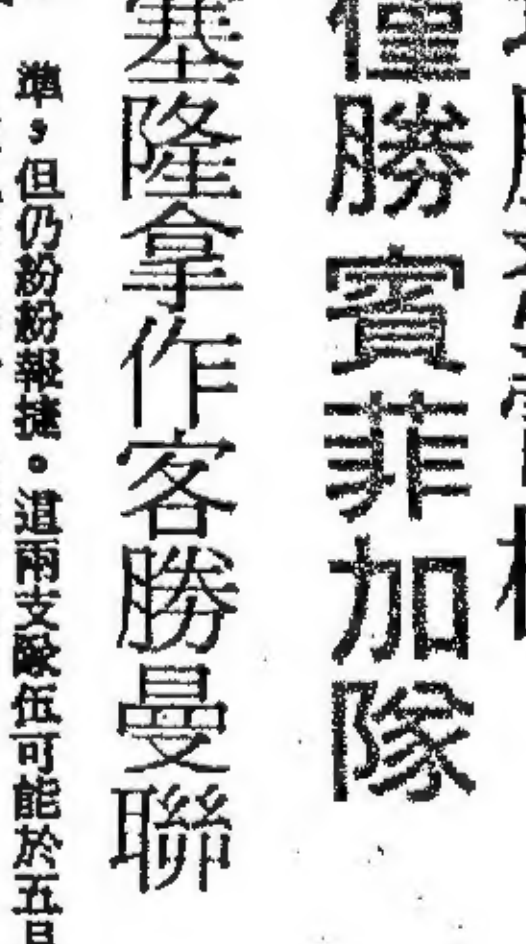 僅勝賓菲加隊
塞隆拿作客勝曼聯
準，但仍紛紛報捷。這兩支隊伍可能於五月